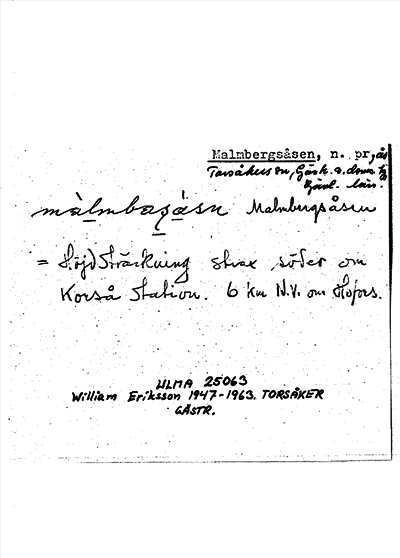 Malmbergsåsen, n. pr, ås
Torsåkers sn, Gästr. ö. domsg
Gävl. län.
màlmbasåsn Malmbergsåsen
= Höjdsträckning strax söder om
Korså Station. 6 km N.V. om Hofors.
ULMA 25063
William Eriksson 1947-1963. TORSÅKER
GÄSTR.